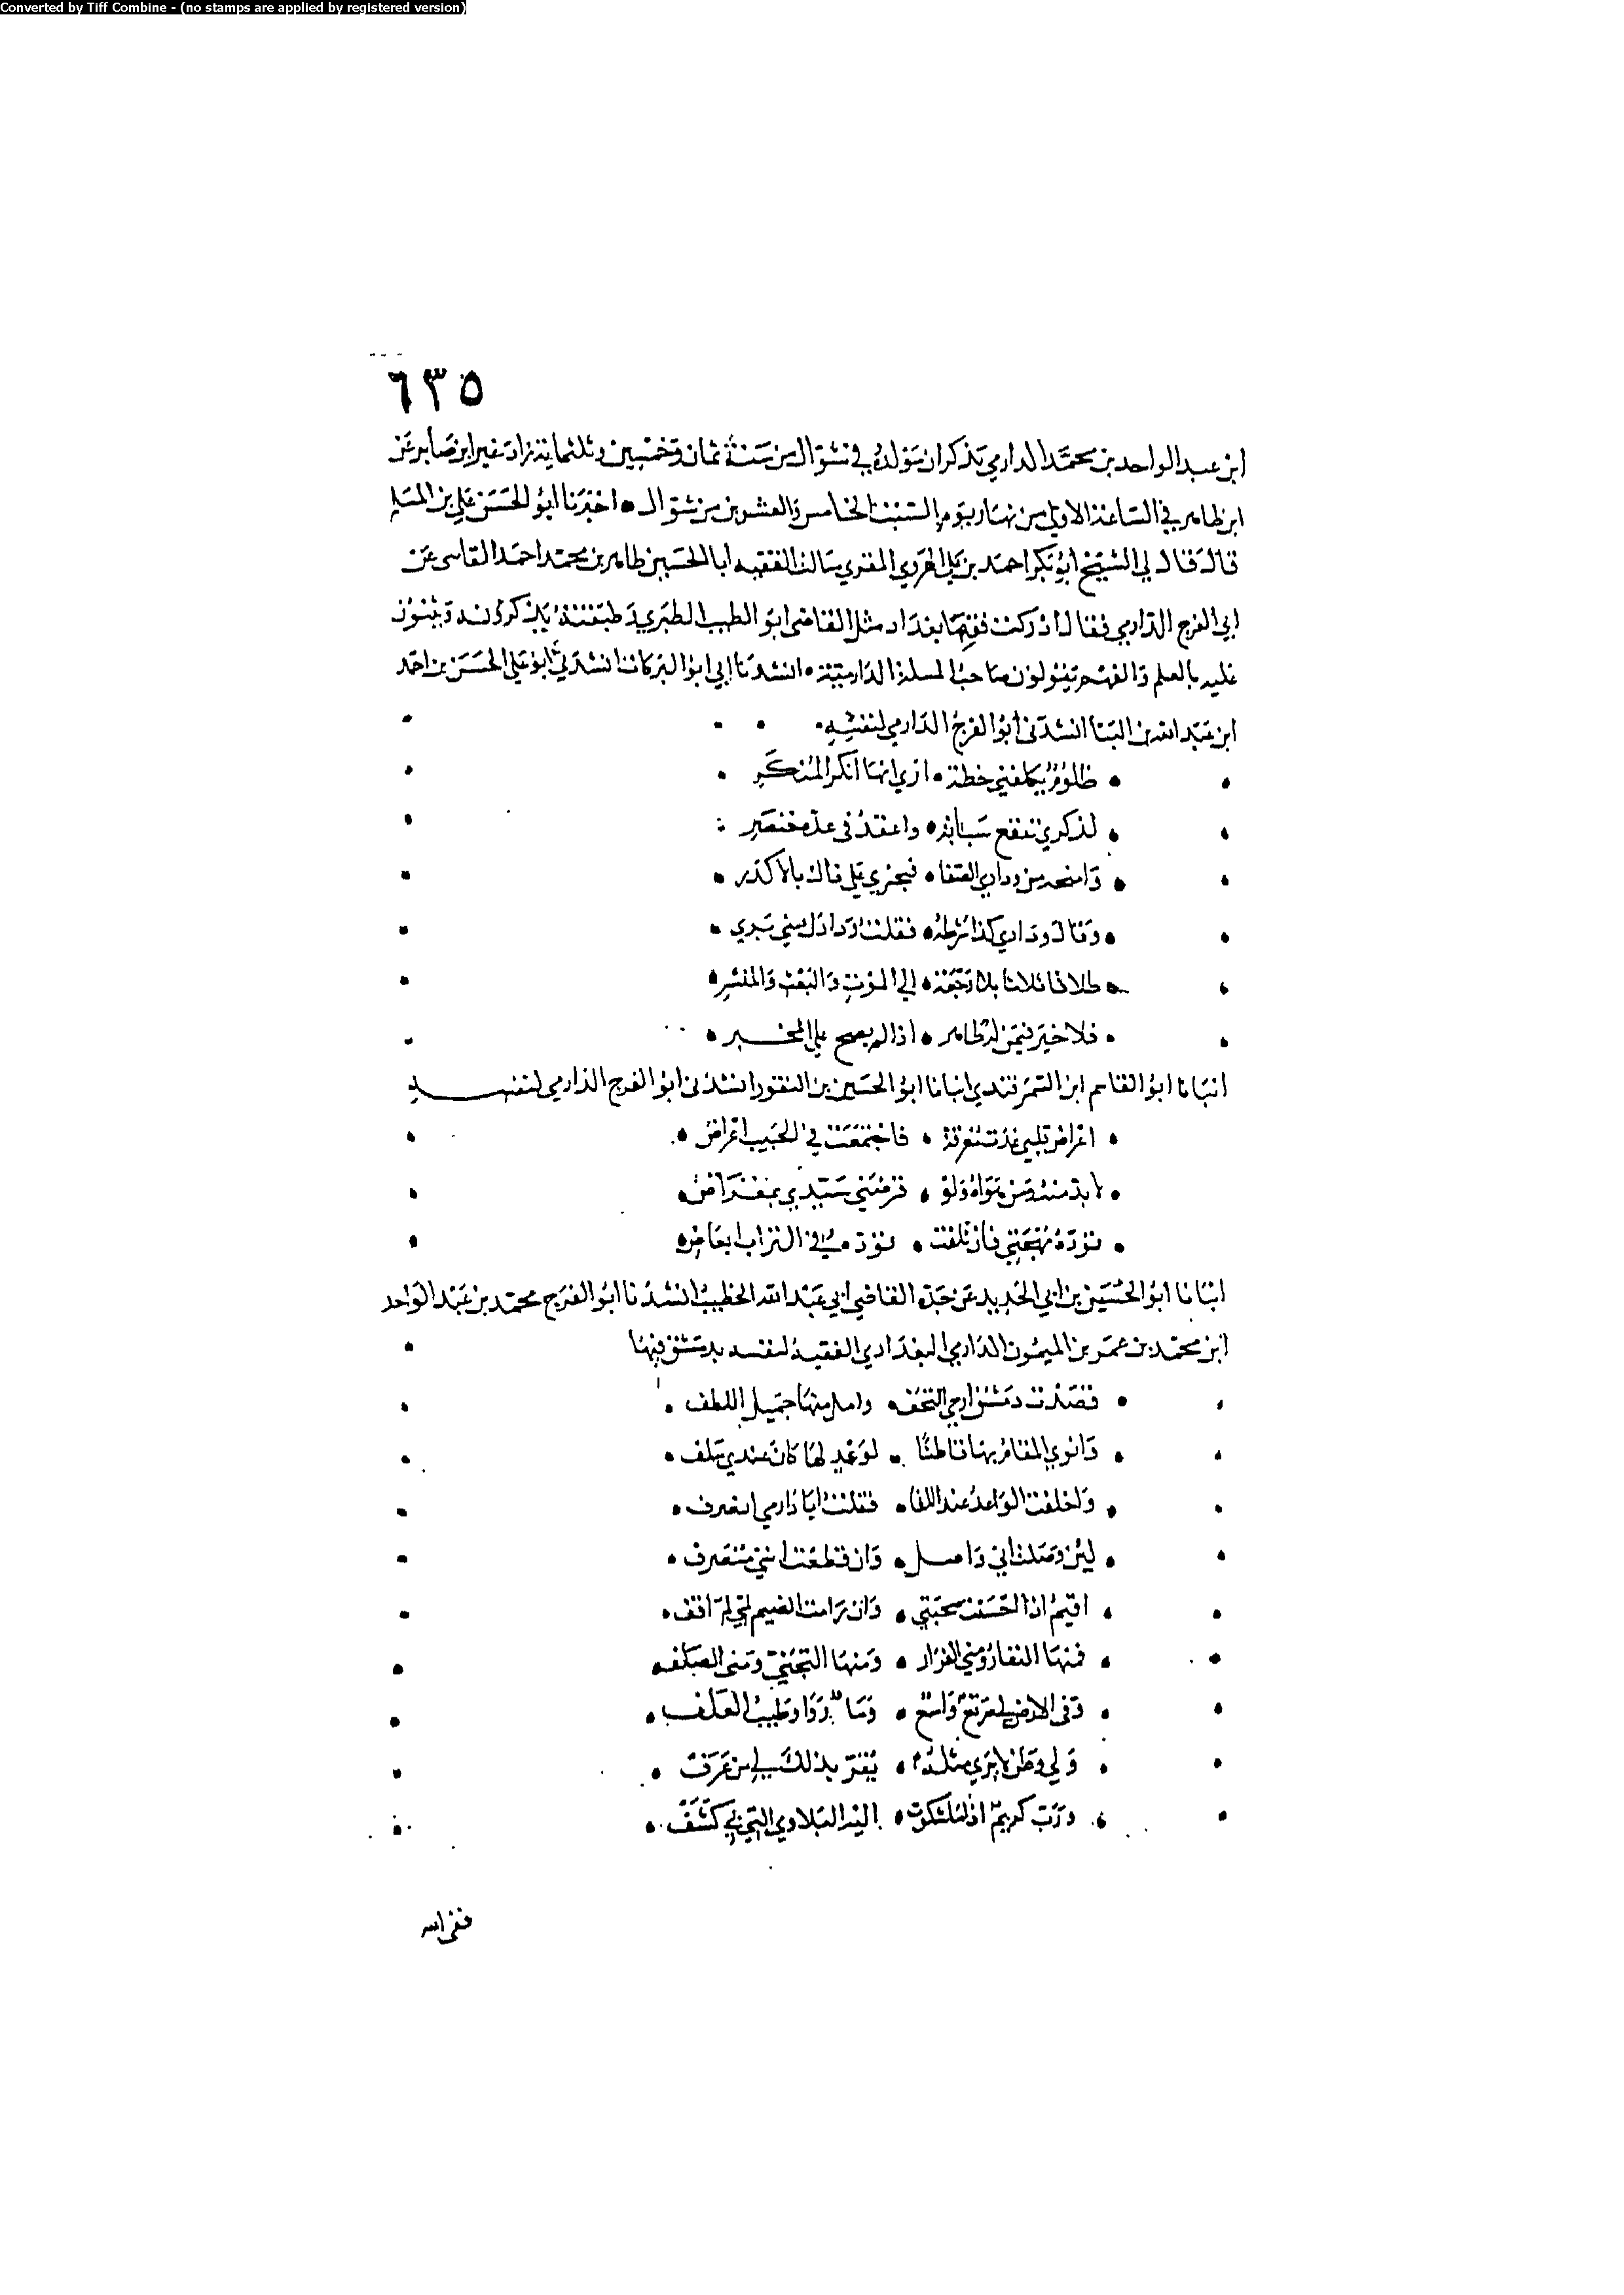 Converted by Tiff Combine - (no stamps are applied by registered version)
٦٣٥
ابن عبد الواحد بن محمد الدارمي يذكر ان مولده في شوال من سنة ثمان وخمسين وثلثماية زاد غير ابن صابر عن
ابن طاهر في الساعة الاولى من نهار يوم السبت الخامس والعشرين من شوال اخبرنا ابو الحسن علي بن المسلم
قال قال لي الشيخ ابو بكر احمد بن علي الهروي المقري سالت الفقيه ابا الحسين طاهر بن محمد احمد القاسي عن
ابي الفرج الدارمي فقال ادركت فقها بغداد مثل القاضي ابو الطيب الطبري وطبقته يذكرونه ويثنون
عليه بالعلم والفهم ويقولون صاحب المسلة الدارمية انشدنا ابي ابو البركات انشدني ابو علي الحسن بن احمد
ابن عبد الله بن البنا انشدني ابو الفرج الدارمي لنفسه
ظلوم يكلفني خطة ازي انها انكر المنكر
لذكري تقفع سبابه واعقد في عده خنصر
وامنحه من ودادي الصفا فيجزي علي ذاك بالاكدر
وقال ودادي كذا شرطه فقلت ودادك مني بري
طلاقا ثلاثا بلا رجعة الي الموت والبعث والمنشر
فلا خير فيمن له ظاهر اذا لم يصح علي المخبر
انبانا ابو القاسم ابن السمرقندي انبانا ابو الحسين بن النقور انشدني ابو الفرج الدارمي لنفسه
اعراض قلبي غدت متفرقة فاجتمعت في الحبيب اعراض
لا بد منه ومن هواه ولو قرضني سيدي بمقراض
توده مهجتي فان تلفت توده في التراب ابعاض
انبانا ابو الحسين بن ابي الحديد عن جده القاضي ابي عبد الله الخطيب انشدنا ابو الفرج محمد بن عبد الواحد
ابن محمد بن عمر بن الميمون الدارمي البغدادي الفقيه لنفسه بدمشق فيها
قصدت دمشق ارجي التحف وامل منها جميل اللطف
وانوي المقام بها قاطنا لوعد لها كان عندي سلف
واخلفت الوعد عند اللقا فقلت ايا دارمي انصرف
لين وصلت اني واصل وان قطعت انني منصرف
اقيم اذا احسنت صحبتي وان رامت الضيم لي لم اقف
فمنها النفار ومني الفرار ومنها التجني ومني الصلف
وفي الارض لي مرتع واسع وماء روا وطيب العلف
ولي وطن لا يرى مثله يقر بذلك لي من عرف
ورب كريم اذا ما شكوت اليه البلاوي التي بي كشف